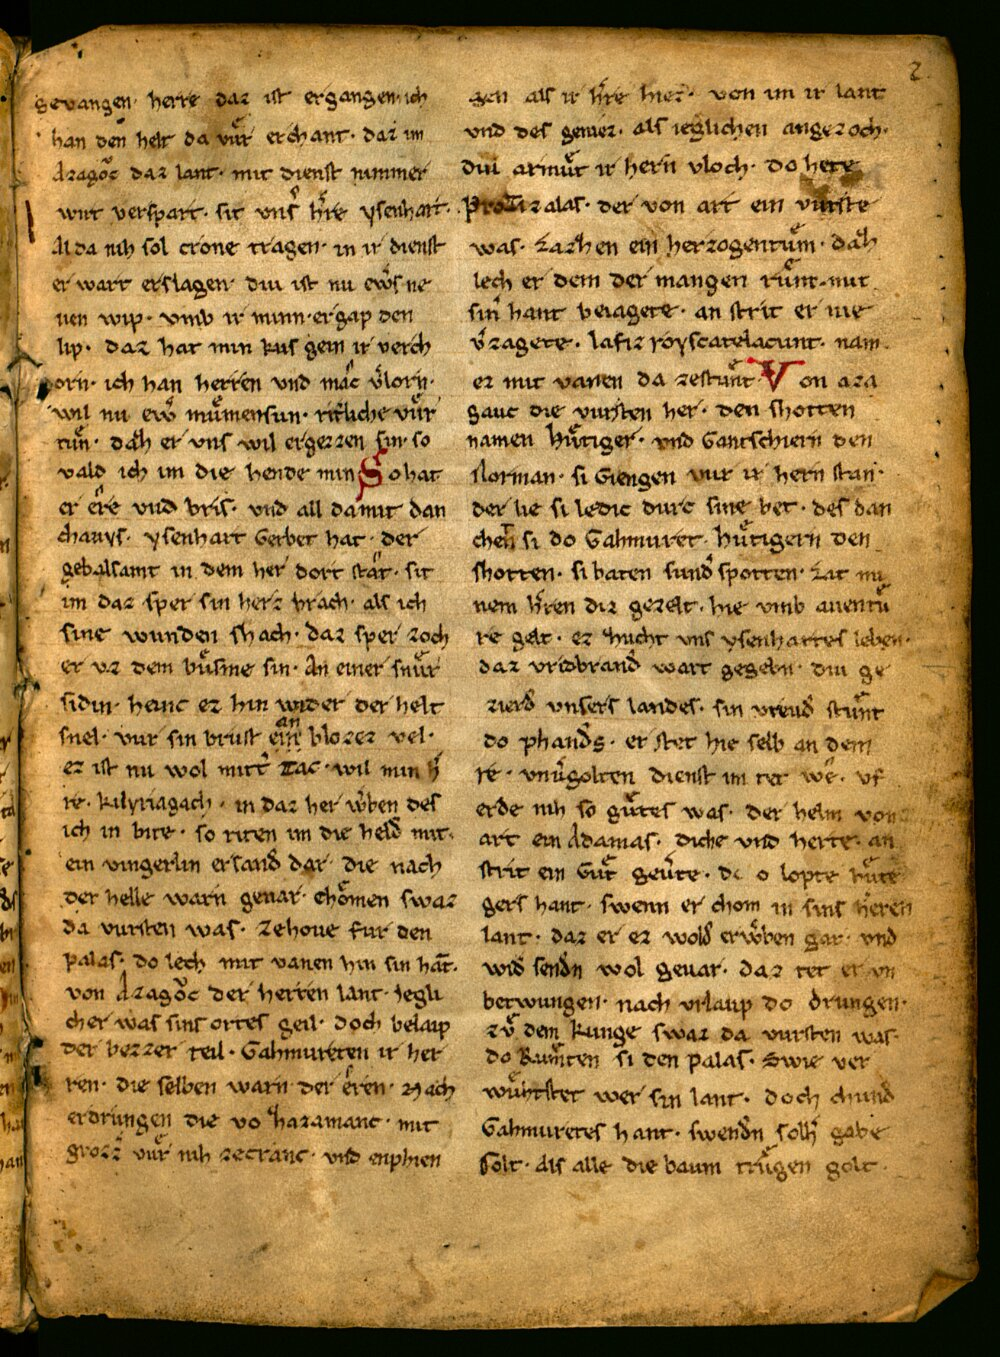 2
gevangen · herre daz ist ergangen · ich
han den helt da vuͤr erchant · daz im
Azagoͮc daz lant · mit dienst nimmer
wirt verspart · sit vns̾ h̾re ysenhart ·
Al da nih sol crone tragen · in ir dienst
er wart erslagen · diu ist nu ew̾s ne
uen wip · vmb ir minn · er gap den
lip · daz hat min kus gein ir verch
orn · ich han herren vnd mac v̾lorn ·
wil nu ew̾ muͤmensun · ritt̾liche vuͤr
tuͤn · dah er vns wil ergezzen sin · so
vald ich im die hende min So hat
er ere vnd bris · vnd all da mit dan
chauys · ysenhart Gerbet hat · der
gebalsamt in dem her dort stat · sit
im daz sper sin herz brach · als ich
sine wunden shach · daz sper zoch
er vz dem buͤsme sin · An einer snuͤr
sidin · heinc ez hin wider der helt
snel · vur sin brust an ein blozez vel ·
ez ist nu wol mitt̾ Tac · wil min h̾
re · kilyriagach · in daz her w̾ben des
ich in bite · so riten im die held mit ·
ein vingerlin er sand dar · die nach
der helle warn gevar · choͤmen swaz
da vursten was · Zehoue fur den
palas · do lech mit vanen hin sin hat ·
von Azagoͮc der herren lant · Jegli
cher was sins ortes geil · doch belaip
der bezzer teil · Gahmureten ir her
ren · die selben warn der eren · Nach
erdrungen die vo hazamanc · mit
grozz̾ vuͤr nih zecranc · vnd enphien
gen als ir h̾re hiez · von im ir lant
vnd des geniez · als ieglichen angezoch ·
diu armuͤt ir hern vloch · do hete
Protizalas · der von art ein vurste
was · Lazhen ein herzogentuͤm · dah
lech er dem der mangen ruͤm · mit
sin̾ hant beiagete · an strit er nie
v̾zagete · lafiz royscatelacunt · nam
ez mit vanen da zestunt Von aza
gauc die vursten her · den shotten
namen huͤtiger · vnd Gantschiern den
Norman · si Giengen vur ir hern stan ·
der lie si ledic durc sine bet · des dan
cheten si do Gahmuret · huͤtigern den
shotten · si baten sund̾ spotten · Lat mi
nem h̾ren diz gezelt · hie vmb auentu
re gelt · ez zucht vns ysenhartes leben ·
daz vridbrand̾ wart gegebn · diu ge
zierd̾ vnsers landes · sin vreud̾ stunt
do phand̾s · er stet hie selb an dem
re · vnv̾golten dienst im tet we · vf
erde nih so guͤtes was · der helm von
art ein Adamas · diche vnd herte · an
strit ein Guͤt geu̾te · do o lopte huͤte
gers hant · swenn er chom in sins heren
lant · daz er ez wold̾ erw̾ben gar · vnd
wid̾ send̾n wol gevar · daz tet er vn
betwungen · nach vrlaup do drungen ·
zvͦ dem kunge swaz da vursten was ·
do Rumten si den palas · Swie ver
wuͤhstet wer sin lant · doch chund̾
Gahmuretes hant · swend̾n solh̾ gabe
solt · Als alle die baum truͤgen golt ·